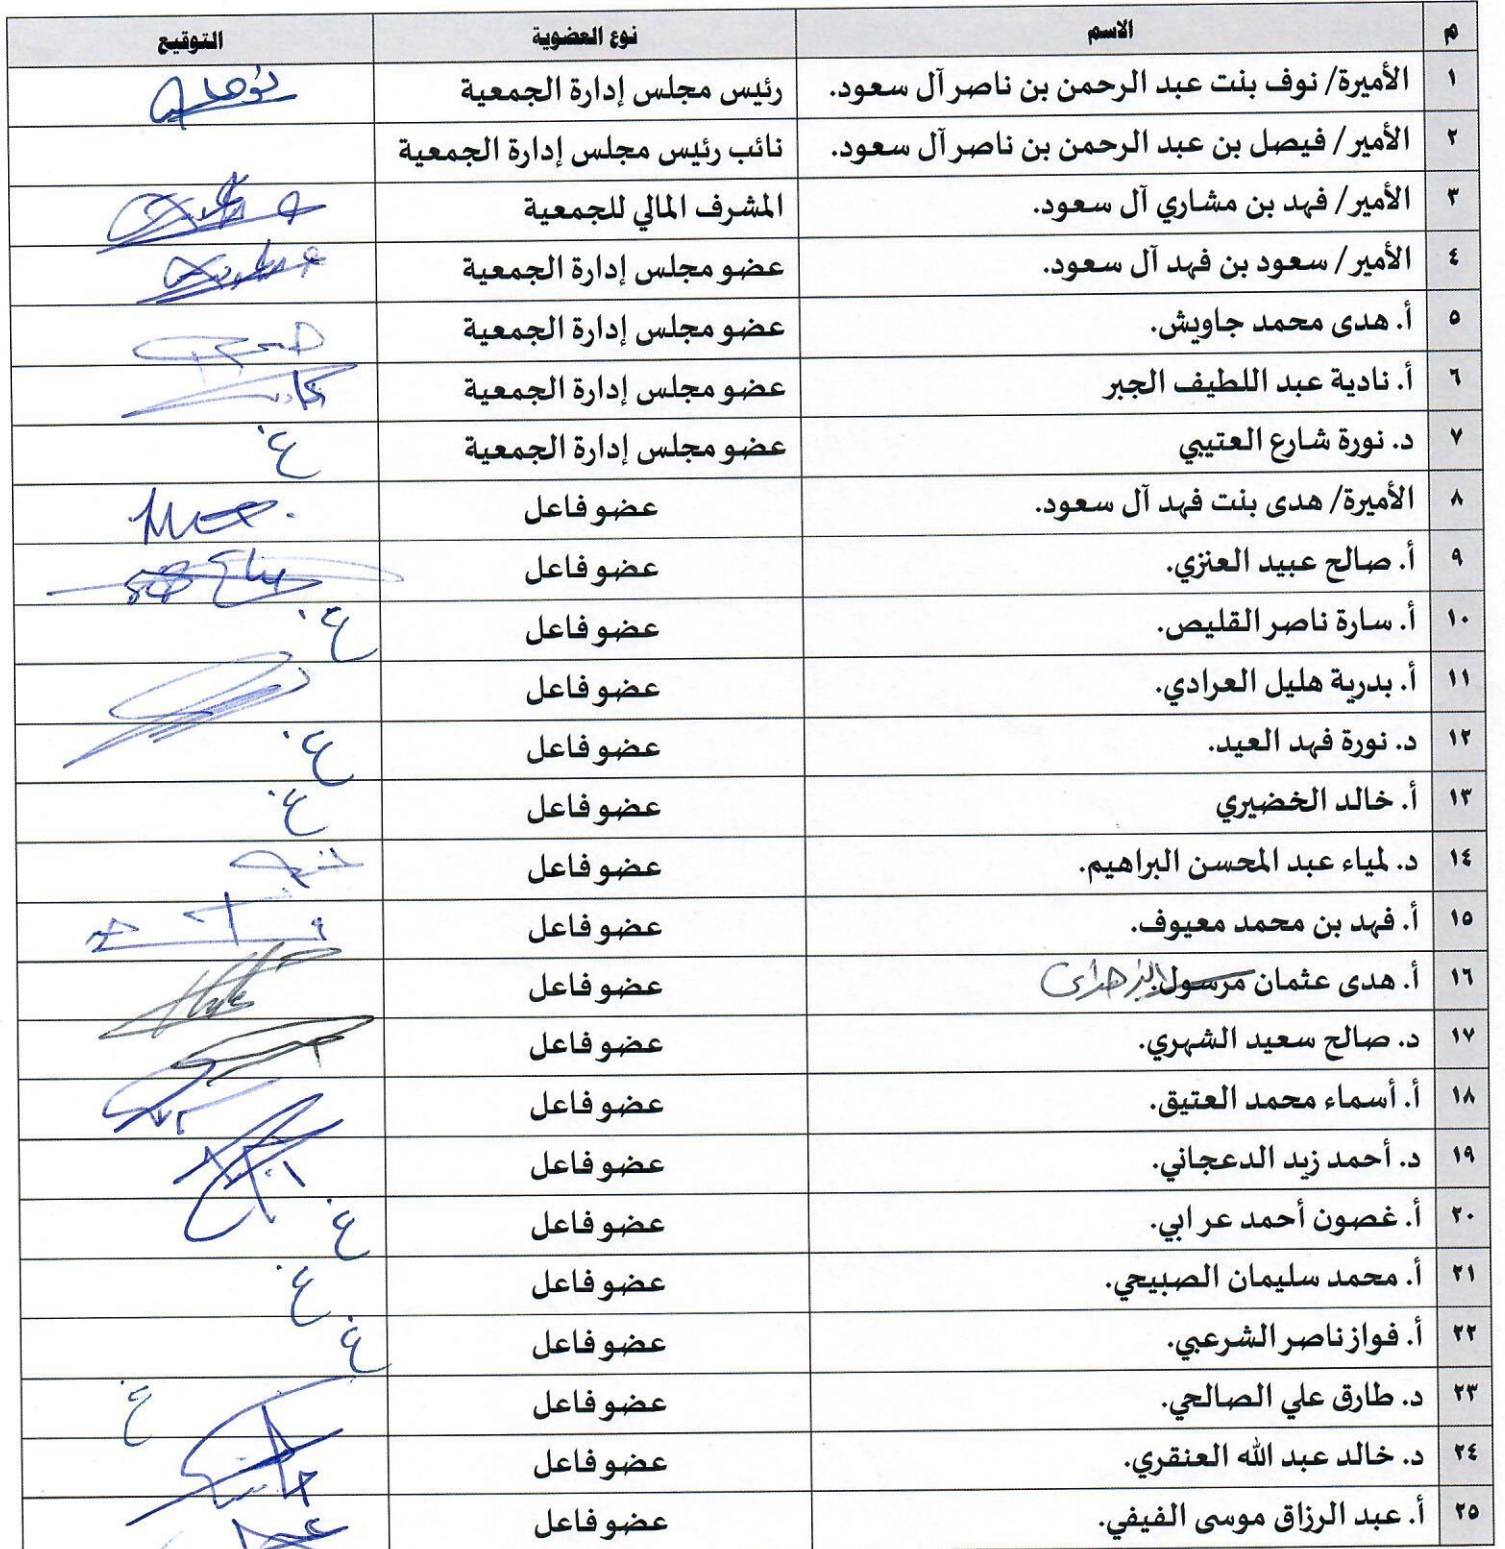 م الاسم نوع العضوية التوقيع
١ الأميرة/ نوف بنت عبد الرحمن بن ناصر آل سعود. رئيس مجلس إدارة الجمعية
٢ الأمير/ فيصل بن عبد الرحمن بن ناصر آل سعود. نائب رئيس مجلس إدارة الجمعية
٣ الأمير/ فهد بن مشاري آل سعود. المشرف المالي للجمعية
٤ الأمير/ سعود بن فهد آل سعود. عضو مجلس إدارة الجمعية
٥ أ. هدى محمد جاويش. عضو مجلس إدارة الجمعية
٦ أ. نادية عبد اللطيف الجبر عضو مجلس إدارة الجمعية
٧ د. نورة شارع العتيبي عضو مجلس إدارة الجمعية غ
٨ الأميرة/ هدى بنت فهد آل سعود. عضو فاعل
٩ أ. صالح عبيد العنزي. عضو فاعل
١٠ أ. سارة ناصر القليص. عضو فاعل غ
١١ أ. بدرية هليل العرادي. عضو فاعل
١٢ د. نورة فهد العيد. عضو فاعل غ
١٣ أ. خالد الخضيري عضو فاعل غ
١٤ د. لمياء عبد المحسن البراهيم. عضو فاعل
١٥ أ. فهد بن محمد معيوف. عضو فاعل
١٦ أ. هدى عثمان مرسول. الزهراني عضو فاعل
١٧ د. صالح سعيد الشهري. عضو فاعل
١٨ أ. أسماء محمد العتيق. عضو فاعل
١٩ د. أحمد زيد الدعجاني. عضو فاعل
٢٠ أ. غصون أحمد عرابي. عضو فاعل غ
٢١ أ. محمد سليمان الصبيحي. عضو فاعل غ
٢٢ أ. فواز ناصر الشرعبي. عضو فاعل غ
٢٣ د. طارق علي الصالحي. عضو فاعل غ
٢٤ د. خالد عبد الله العنقري. عضو فاعل
٢٥ أ. عبد الرزاق موسى الفيفي. عضو فاعل